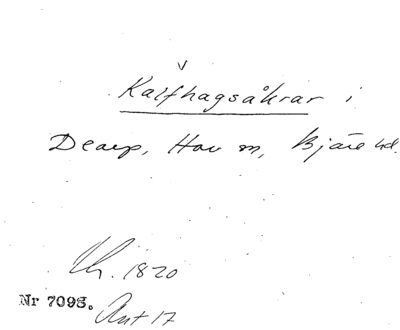 v
Kalfhagsåkrar i
Dearp, Hov sn, Bjäre hd.
Lh. 1820
Nr 7095. Ant 17